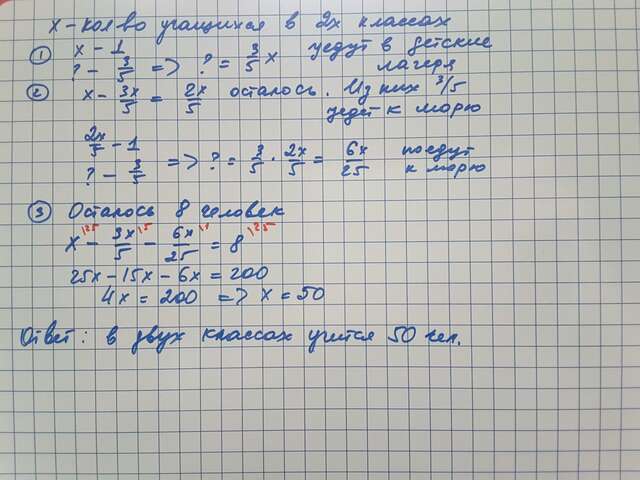 x - кол-во учащихся в 2х классах
① x - 1
? - 3/5 => ? = 3/5 x уедут в детские лагеря
② x - 3x/5 = 2x/5 осталось. Из них 3/5
уедет к морю
2x/5 - 1
? - 3/5 => ? = 3/5 · 2x/5 = 6x/25 поедут к морю
③ Осталось 8 человек
x\25 - 3x/5\5 - 6x/25\1 = 8\25
25x - 15x - 6x = 200
4x = 200 => x = 50
Ответ: в двух классах учится 50 чел.